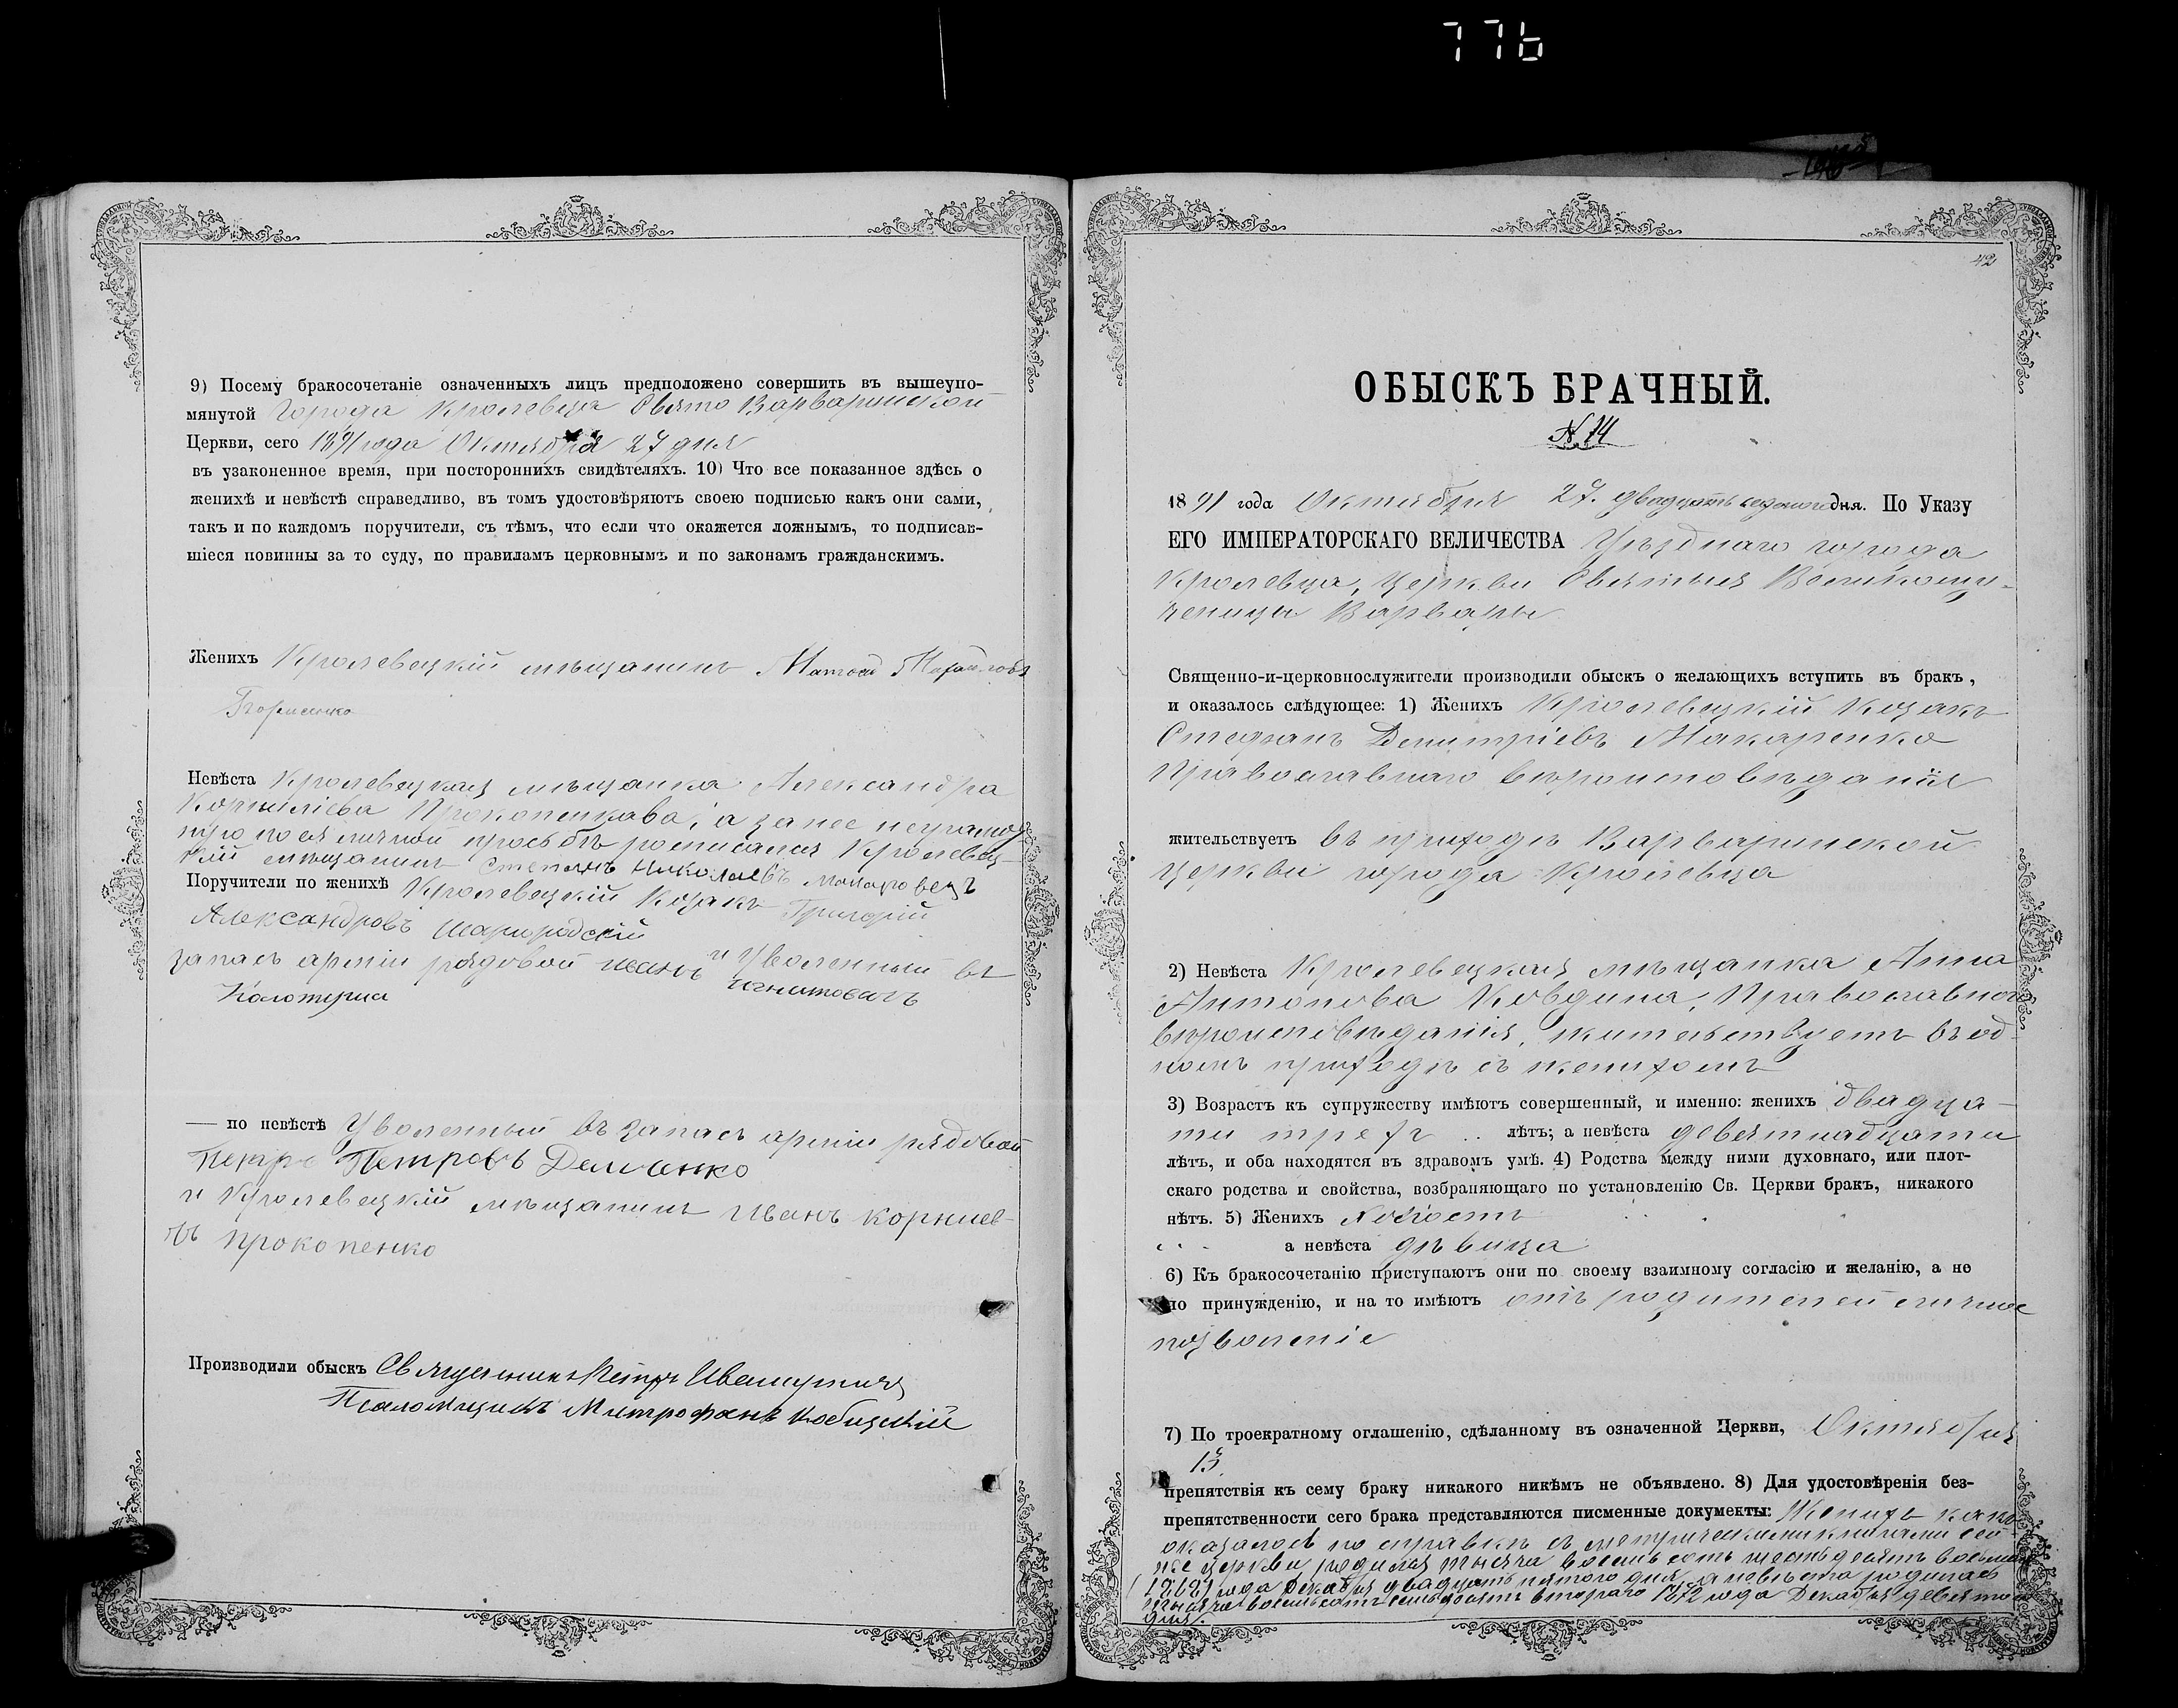 776
9) Посему бракосочетаніе означенныхъ лицъ предположено совершить въ вышеупо-
мянутой Города Кролевца Свято Варваринской
Церкви, сего 1891 года Октября 27 дня
въ узаконенное время, при постороннихъ свидѣтеляхъ. 10) Что все показанное здѣсь о
женихѣ и невѣстѣ справедливо, въ томъ удостовѣряютъ своею подписью какъ они сами,
такъ и по каждомъ поручители, съ тѣмъ, что если что окажется ложнымъ, то подписав-
шіеся повинны за то суду, по правиламъ церковнымъ и по законамъ гражданскимъ.
Женихъ Кролевецкій мѣщанинъ
Невѣста Кролевецкая мѣщанка Александра
Корниліева Прокопенкова, а за нее неграмот
ную по ея личной просьбѣ росписался Кролевец-
кій мѣщанинъ Степанъ Николаевъ Макаровецъ
Поручители по женихѣ Кролевецкій Козакъ Григорій
Александровъ Шаргородскій
и Уволенный въ
запасъ арміи рядовой Иванъ Игнатовичъ
— по невѣстѣ Уволенный въ запасъ арміи рядовой
Петръ Петровъ Демченко
и Кролевецкій мѣщанинъ Иванъ Корниев-
ъ Прокопенко
Производили обыскъ Священникъ Петръ
Псаломщикъ Митрофанъ
42
ОБЫСКЪ БРАЧНЫЙ.
№ 14
1891 года Октября 27. двадцать седьмого дня. По Указу
ЕГО ИМПЕРАТОРСКАГО ВЕЛИЧЕСТВА Уѣзднаго города
Кролевца, церкви Святыя Великому-
ченицы Варвары
Священно-и-церковнослужители производили обыскъ о желающихъ вступить въ бракъ,
и оказалось слѣдующее: 1) Женихъ Кролевецкій Козакъ
Стефанъ Димитріевъ Макаренко
Православнаго вѣроисповѣданія
жительствуетъ въ приходѣ Варваринской
церкви города Кролевца
2) Невѣста Кролевецкая мѣщанка Анна
Антонова Ковдина, Православнаго
вѣроисповѣданія, жительствуетъ въ од-
номъ приходѣ съ женихомъ
3) Возрастъ къ супружеству имѣютъ совершенный, и именно: женихъ двадца-
ти трехъ лѣтъ; а невѣста девятнадцати
лѣтъ, и оба находятся въ здравомъ умѣ. 4) Родства между ними духовнаго, или плот-
скаго родства и свойства, возбраняющаго по установленію Св. Церкви бракъ, никакого
нѣтъ. 5) Женихъ холостъ
а невѣста дѣвица
6) Къ бракосочетанію приступаютъ они по своему взаимному согласію и желанію, а не
по принужденію, и на то имѣютъ отъ родителей личное
позволеніе
7) По троекратному оглашенію, сдѣланному въ означенной Церкви, Октября
13
препятствія къ сему браку никакого никѣмъ не объявлено. 8) Для удостовѣренія без-
препятственности сего брака представляются писменные документы: Женихъ какъ
оказалось по справкѣ съ метрическими книгами сей
же церкви родился тысяча восемь сотъ шестьдесятъ восьмаго
(1868) года Декабря двадцать пятого дня, а невѣста родилась
тысяча восемь сотъ семьдесятъ второго 1872 года Декабря девятого
дня.